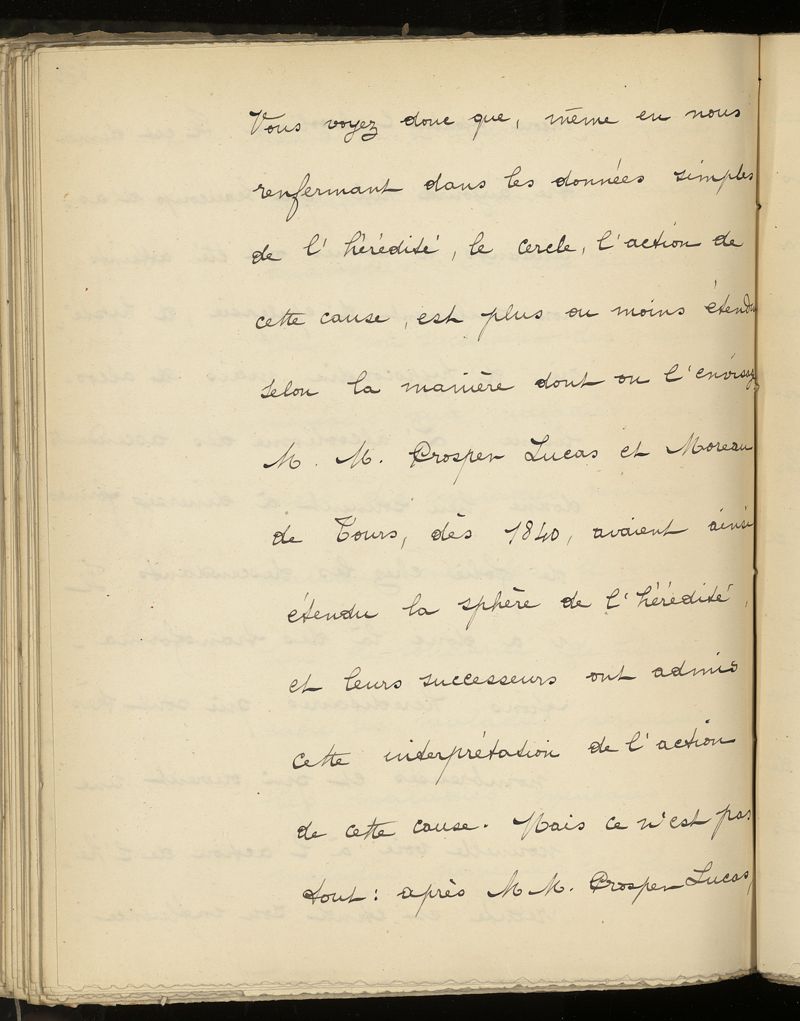 Vous voyez donc que, même en nous
renfermant dans les données simples
de l'hérédité, le cercle, l'action de
cette cause, est plus ou moins étendu
selon la manière dont on l'envisage
M. M. Prosper Lucas et Moreau
de Tours, dès 1840, avaient ainsi
étendu la sphère de l'hérédité,
et leurs successeurs ont admis
cette interprétation de l'action
de cette cause. Mais ce n'est pas
tout : après M M. Prosper Lucas,